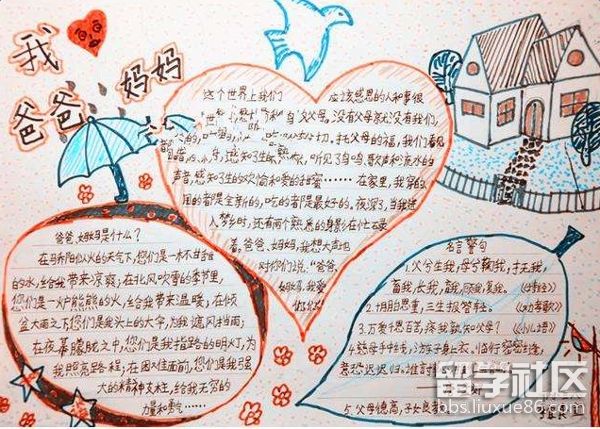 我♥爸爸妈妈
这个世界上我们 应该感恩的人和事很
父母。没有父母就没有我们,
切。托父母的福,我们看见
感知3生的 听见3鸟鸣歌声和流水的
声音,感知3生的欢愉和爱的甜蜜……在家里,我穿的
用的都是全新的,吃的都是最好的。夜深3,当我进
入梦乡时,还有两个熟悉的身影在忙忙碌
着。爸爸、妈妈,我想大声地
对你们说:“爸爸、
妈妈,我爱
你们!
爸爸、妈妈是什么?
在骄阳似火的天气下,您们是一水不甘甜
的水,给我带来凉爽;在北风吹雪的季节里,
您们是一炉熊熊的火,给我带来温暖;在倾
盆大雨之下,您们是我头上的大伞,为我遮风挡雨;
在夜幕朦胧之中,您们是我指路的明灯,为
我照亮路程;在困难面前,您们是我强
大的精神支柱,给我无穷的
力量和勇气……
名言警句
1.父兮生我,母兮鞠我,拊我,
畜我,长我,育我,顾我,复我。 《诗经》
2.十月胎恩重,三生报答轻。 《劝孝歌》
3.万爱千恩百苦,疼我孰知父母? 《小儿语》
4.慈母手中线,游子身上衣。临行密密缝,
意恐迟迟归。谁言
5.父母德高,子女良教
留学社区
bbs.liuxue86.com